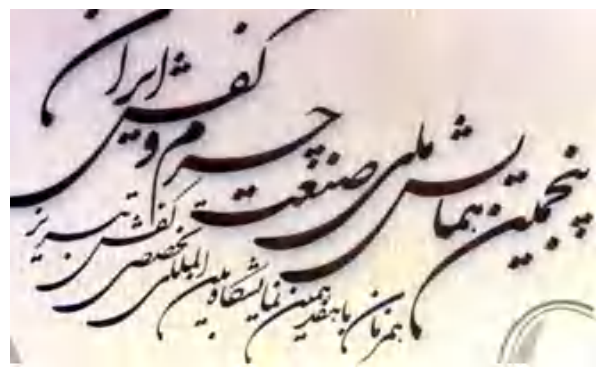 پنجمین همایش ملی صنعت چرم و کفش ایران
همزمان با هفدهمین نمایشگاه بین المللی تخصصی کفش تبریز